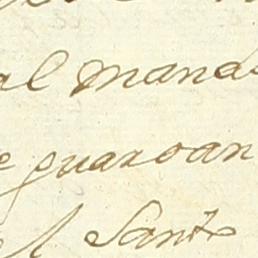 al manda
e guardan
el Santo